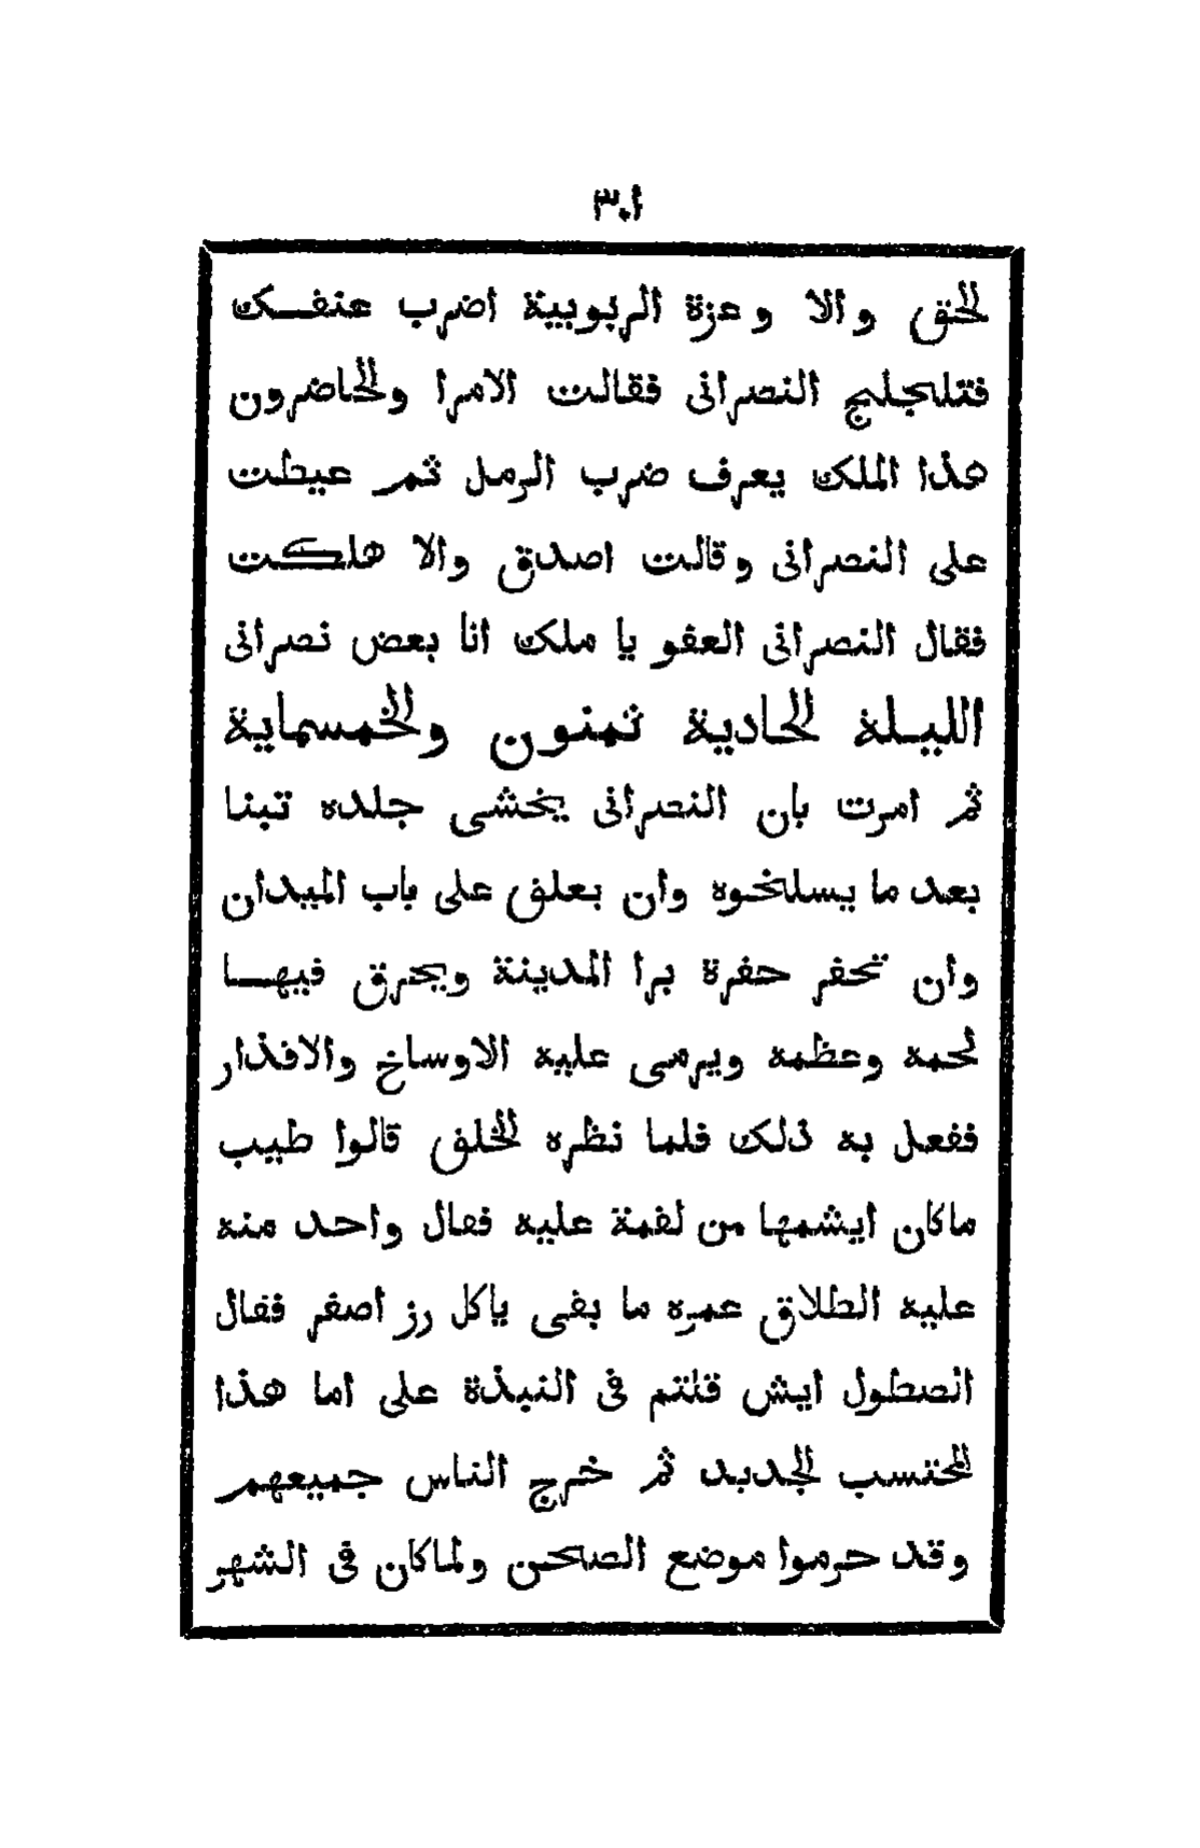 ٣٠١
الحق والا وعزة الربوبية اضرب عنقك
فتلجلج النصرانى فقالت الامرا والحاضرون
هذا الملك يعرف ضرب الرمل ثم عيطت
على النصرانى وقالت اصدق والا هلكت
فقال النصرانى العفو يا ملك انا بعض نصرانى
الليلة الحادية ثمنون والخمسماية
ثم امرت بان النصرانى يخشى جلده تبنا
بعد ما يسلخوه وان يعلق على باب الميدان
وان تحفر حفرة برا المدينة ويحرق فيها
لحمه وعظمه ويرمى عليه الاوساخ والاقذار
ففعل به ذلك فلما نظره الخلق قالوا طيب
ماكان ايشمها من لقمة عليه فقال واحد منه
عليه الطلاق عمره ما بقى ياكل رز اصفر فقال
المصطول ايش قلتم فى النبذة على اما هذا
المحتسب الجديد ثم خرج الناس جميعهم
وقد حرموا موضع الصحن ولماكان فى الشهر